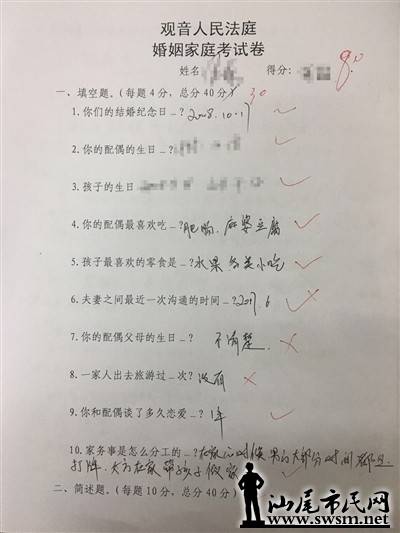 观音人民法庭
婚姻家庭考试卷
姓名 得分: 80
一、填空题。(每题4分，总分40分) 30
1.你们的结婚纪念日_?2008.10.17
2.你的配偶的生日_?
3.孩子的生日
4.你的配偶最喜欢吃_?肥肠、麻婆豆腐
5.孩子最喜欢的零食是_?水果 各类小吃
6.夫妻之间最近一次沟通的时间_?2017.6
7.你的配偶父母的生日_? 不清楚
8.一家人出去旅游过_次? 没有
9.你和配偶谈了多久恋爱_? 1年
10.家务事是怎么分工的_?在家的时候 男的大部分时间都是
打牌、女方在家带孩子做家
二、简述题。(每题10分，总分40分)
汕尾市民网
www.swsm.net